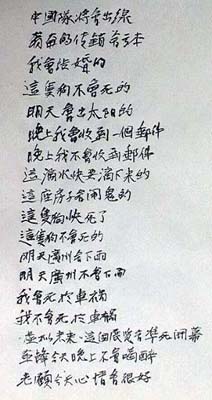 中國隊將會出線
我會結婚的
這隻狗不會死的
明天會出太阳的
晚上我會收到一個郵件
晚上我不會收到郵件
這滴水快要滴下來的
這座房子會鬧鬼的
這隻狗快死了
這隻狗不會死的
明天廣州會下雨
明天廣州不會下雨
我會死於車禍
我不會死於車禍
今天晚上不會喝醉
老顧今天心情會很好